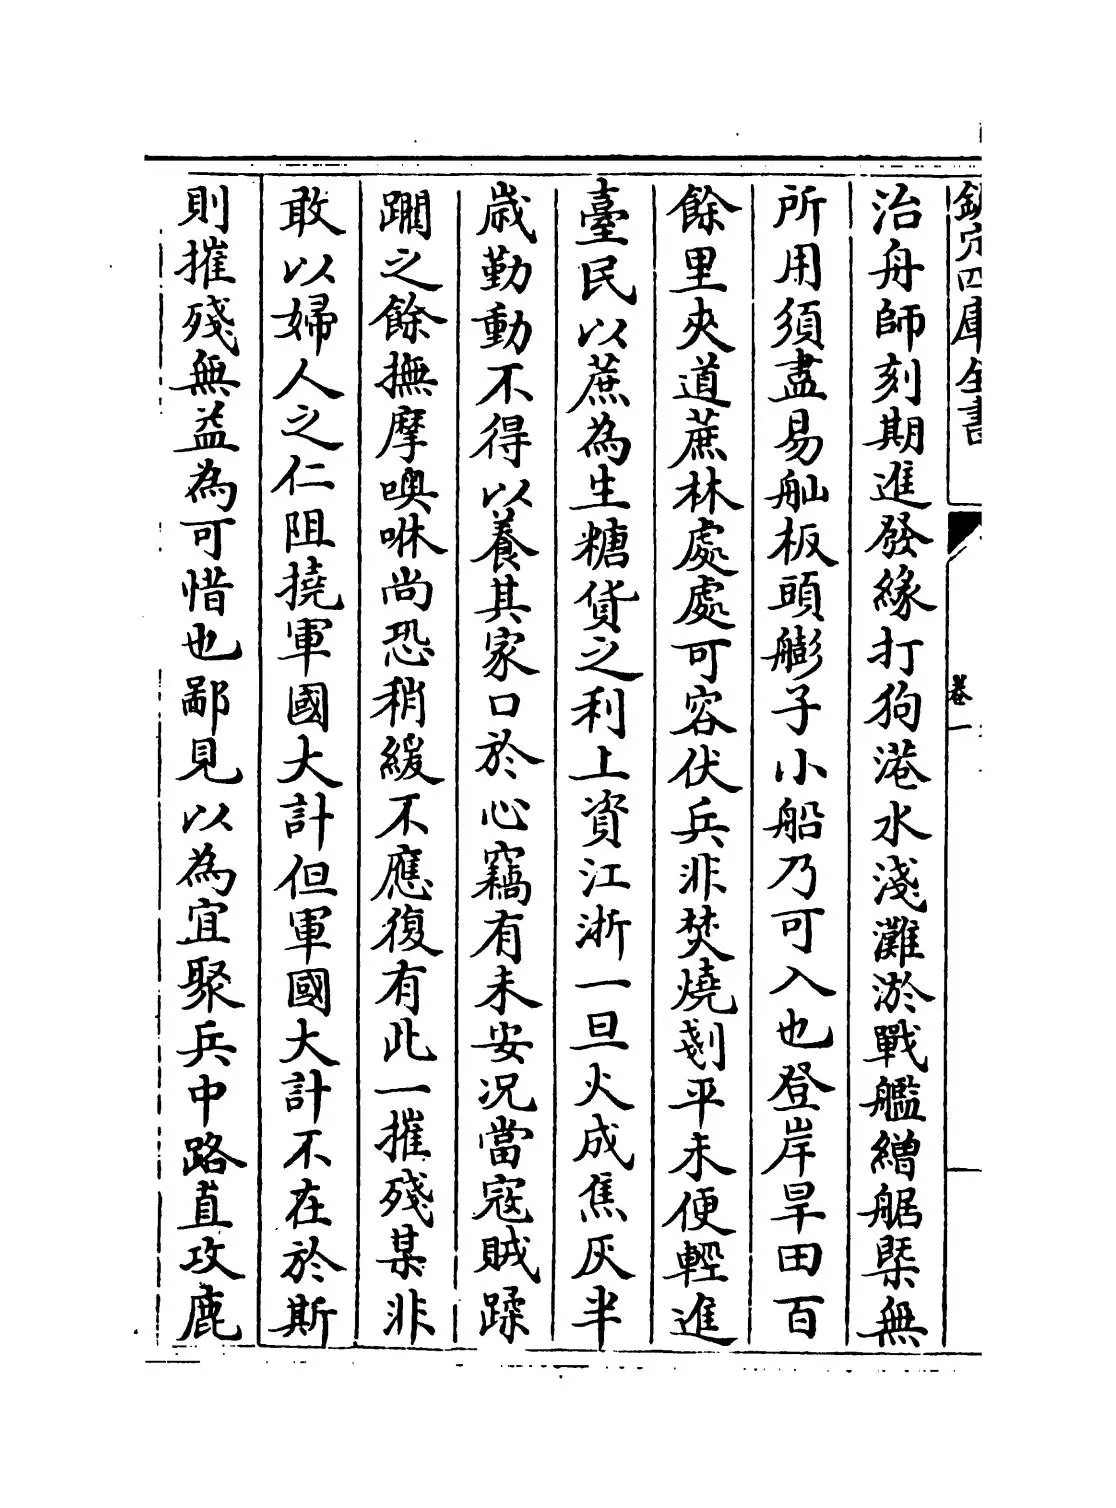 欽定四庫全書
卷一
治舟師刻期進發緣打狗港水淺灘淤戰艦繒艍槩無
所用須盡易舢板頭艍子小船乃可入也登岸旱田百
餘里夾道蔗林處處可容伏兵非焚燒剗平未便輕進
臺民以蔗為生糖貨之利上資江浙一旦火成焦灰半
歲勤動不得以養其家口於心竊有未安況當寇賊蹂
躪之餘撫摩噢咻尚恐稍緩不應復有此一摧殘某非
敢以婦人之仁阻撓軍國大計但軍國大計不在於斯
則摧殘無益為可惜也鄙見以為宜聚兵中路直攻鹿